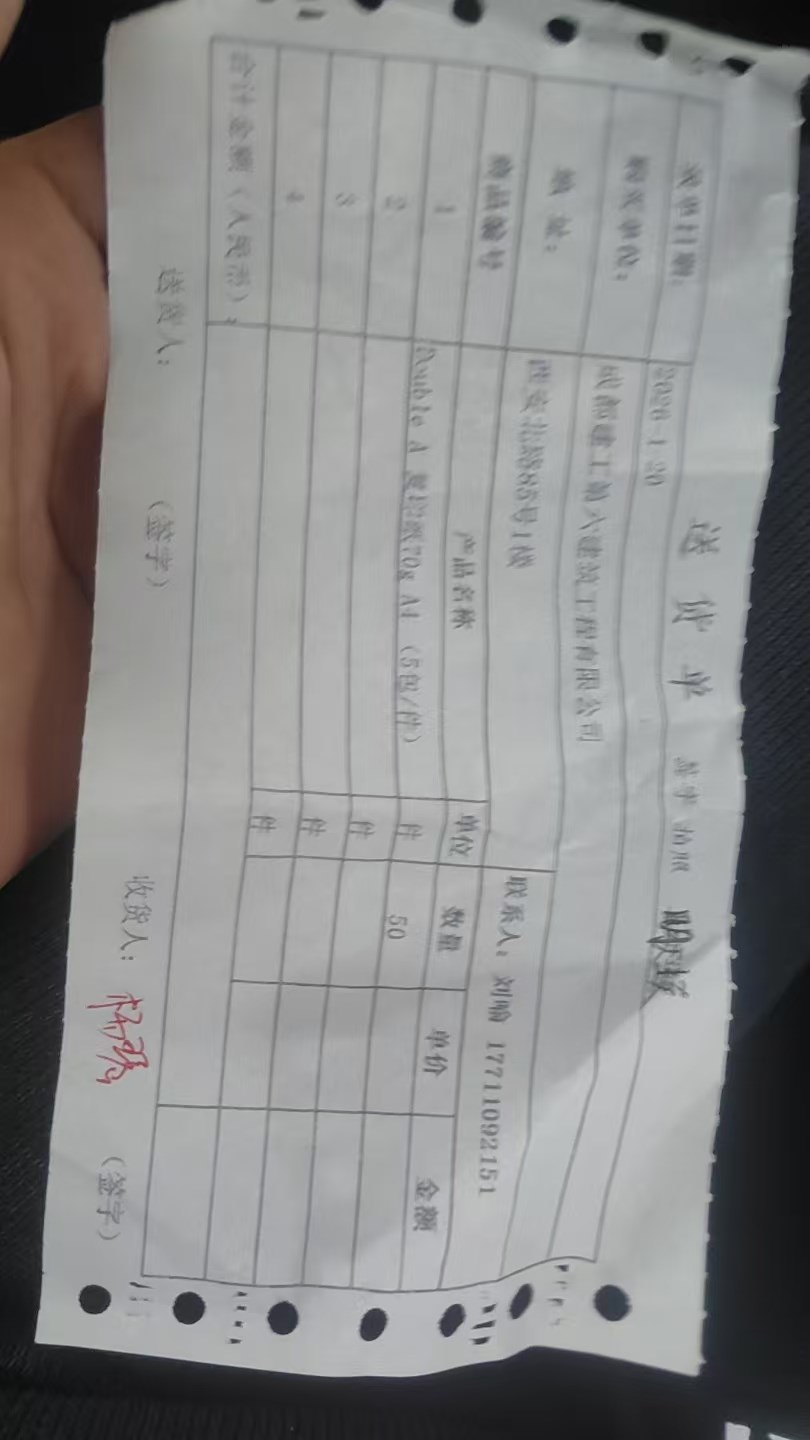 送 货 单 签字 拍照
送单日期: 2026-1-20
购买单位: 成都建工第六建筑工程有限公司
地 址: 西安北路88号1楼 联系人: 刘喻 17711092151
商品编号 产品名称 单位 数量 单价 金额
1 Double A 复印纸70g A4 (5包/件) 件 50
2 件
3 件
4 件
合计金额(人民币):
送货人: (签字) 收货人: (签字)